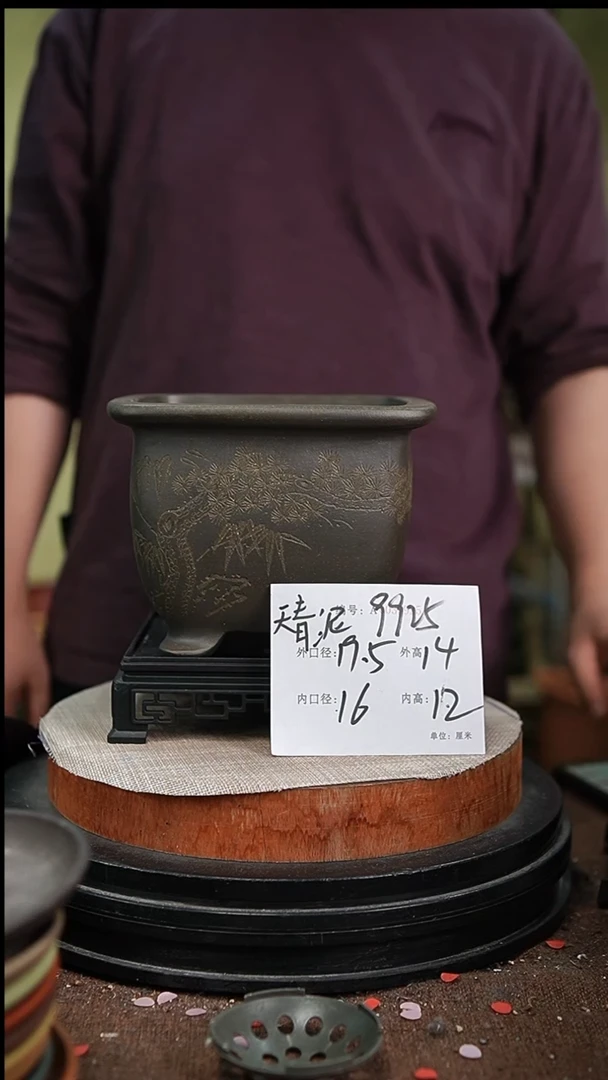 天青泥 编号: 9925
外口径: 17.5 外高: 14
内口径: 16 内高: 12
单位: 厘米